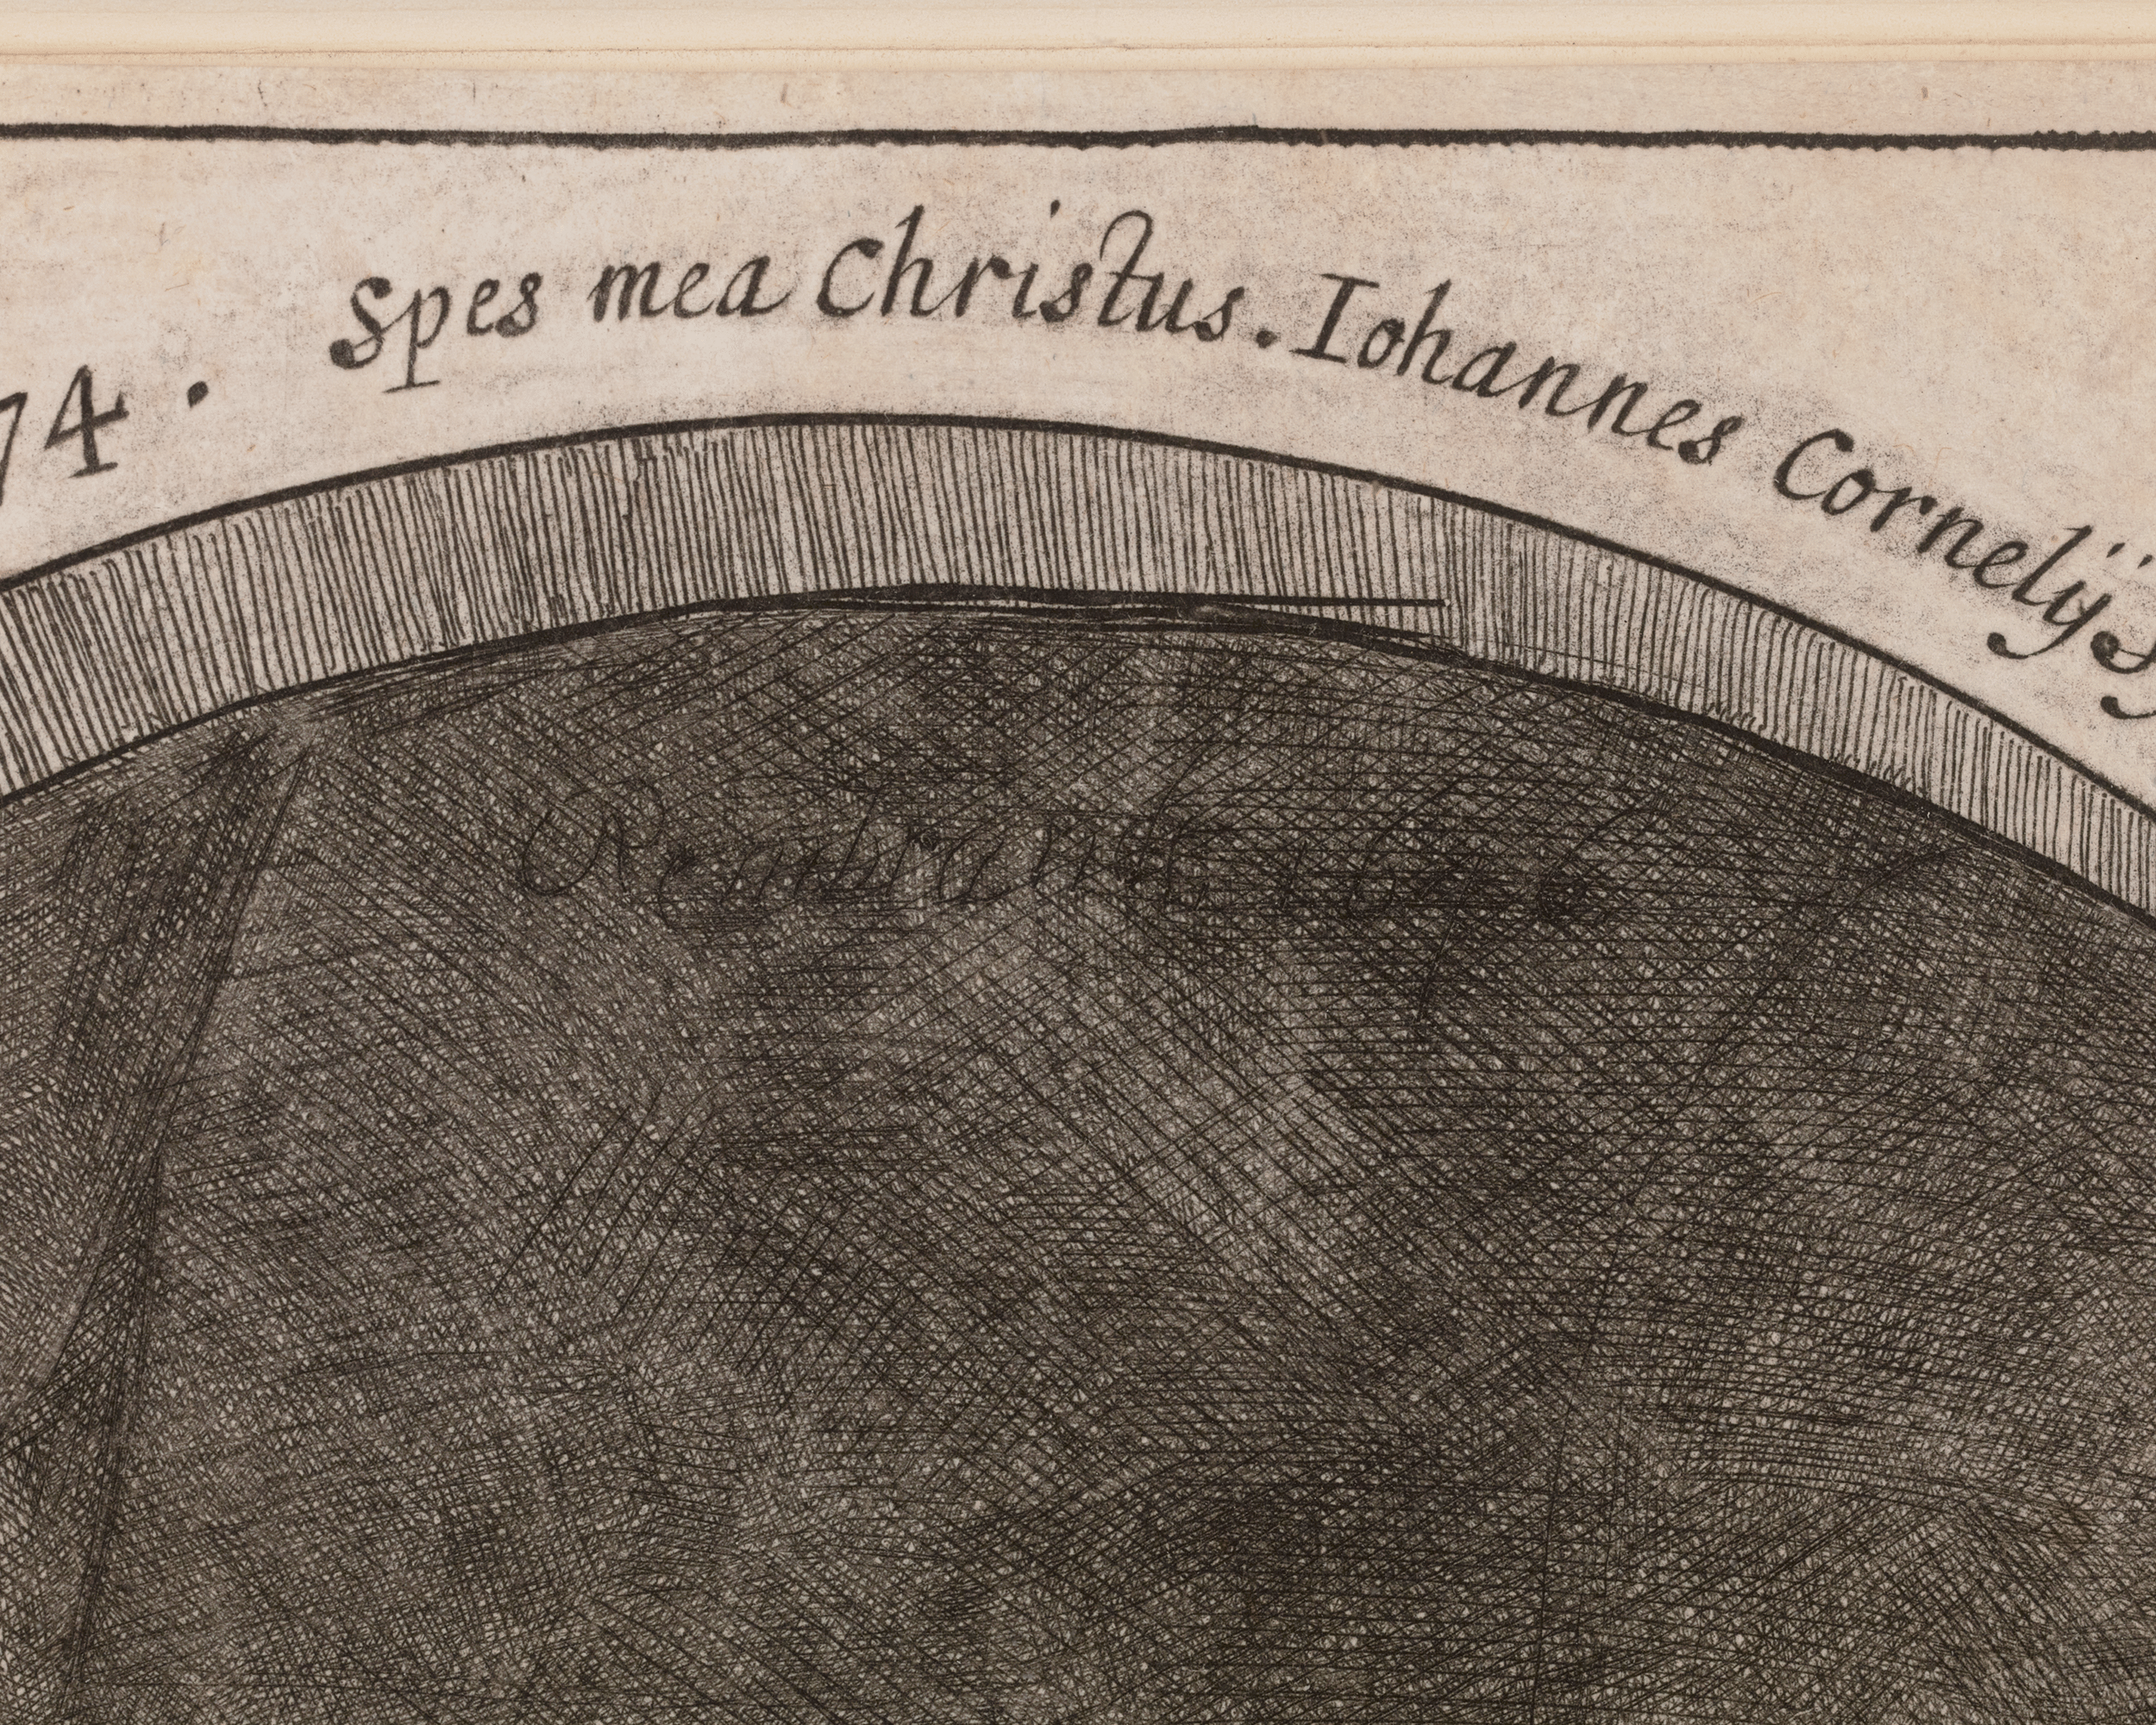 74. Spes mea Christus. Iohannes Cornelijs
Rembrandt